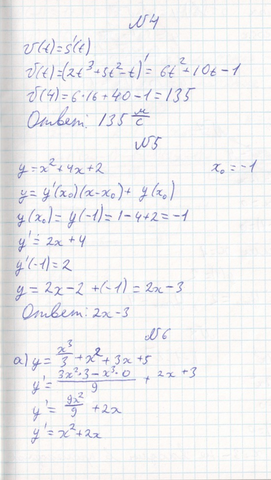 №4
v(t)=s'(t)
v(t)=(2t³+5t²-t)'=6t²+10t-1
v(4)=6·16+40-1=135
Ответ: 135 м/с
№5
y=x²+4x+2 x₀=-1
y=y'(x₀)(x-x₀)+y(x₀)
y(x₀)=y(-1)=1-4+2=-1
y'=2x+4
y'(-1)=2
y=2x-2+(-1)=2x-3
Ответ: 2x-3
№6
а) y=x³/3+x²+3x+5
y'=(3x²·3-x³·0)/9+2x+3
y'=9x²/9+2x
y'=x²+2x